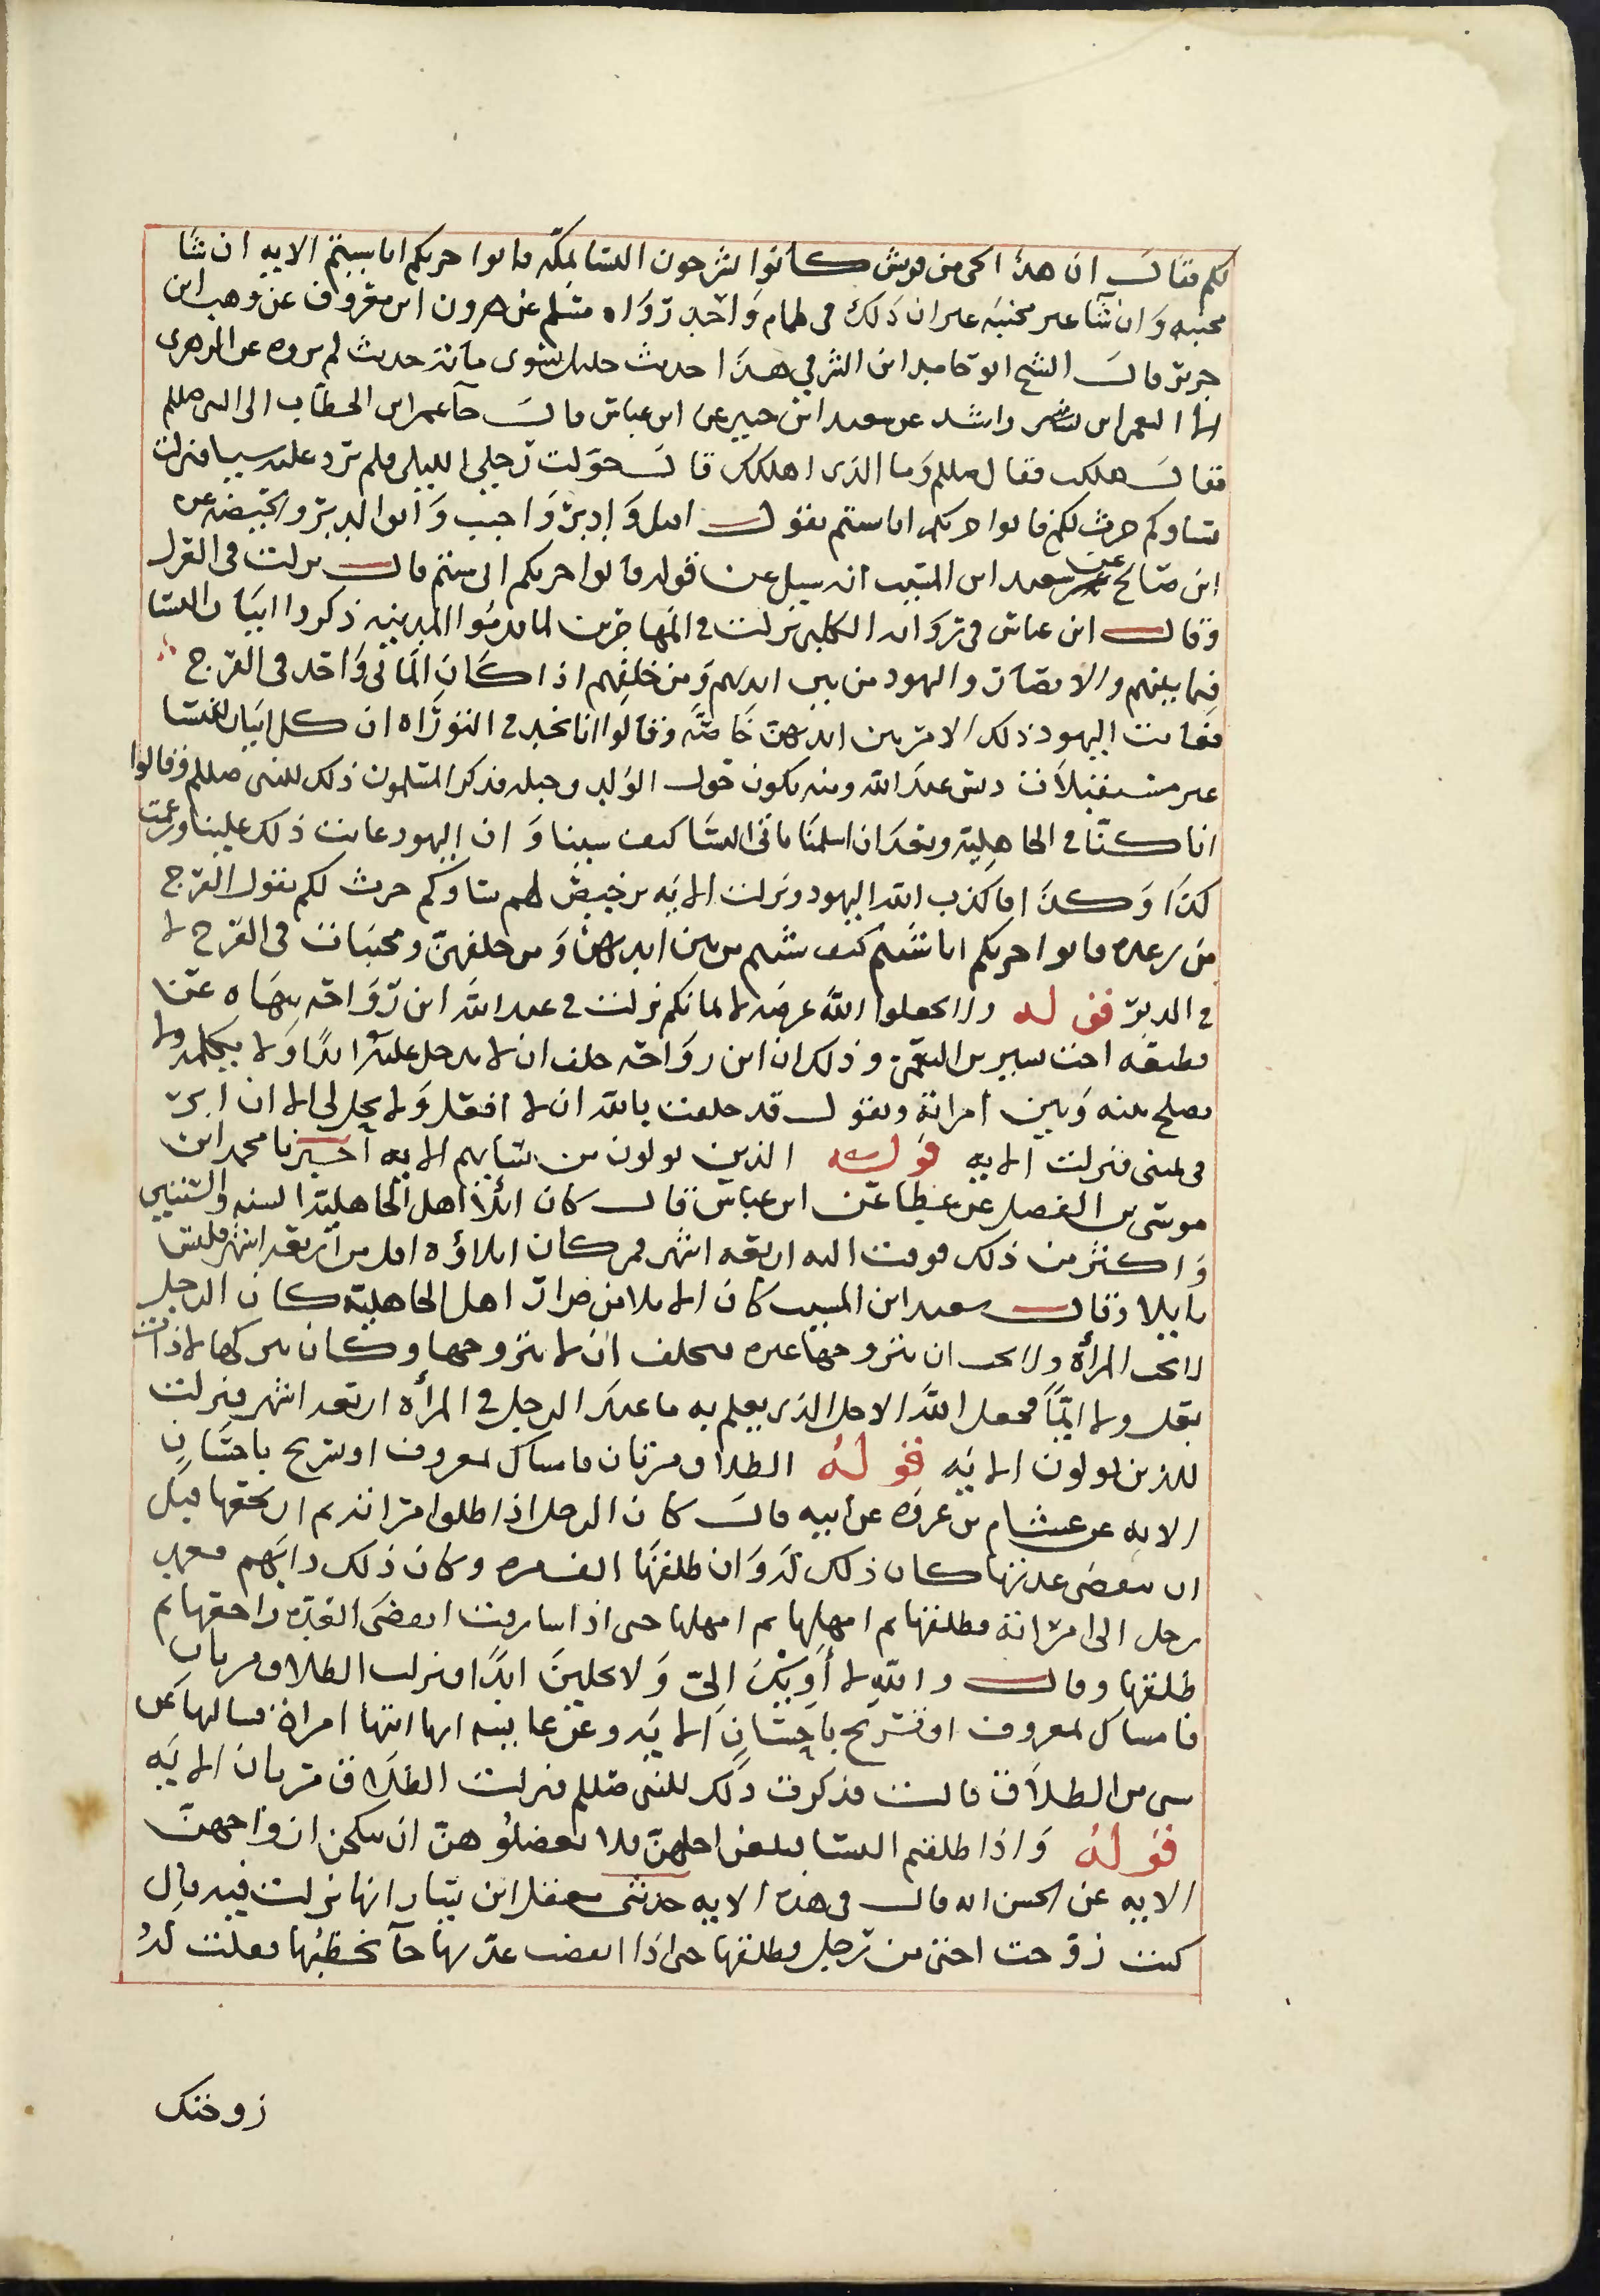 لكم فقال ان هذا الحى من قريش كانوا يشرحون النسا بمكه فاتوا حرثكم انا شيتم الايه ان شا
مجنبه وان شا غير مجنبه غير ان ذلك فى صمام واحد رواه مسلم عن هرون ابن معروف عن وهب ابن
جرير قال الشيخ ابو حامد ابن الشرقي هذا حديث جليل يسوى مائة حديث لم يروه عن الزهرى
الا النعمان ابن راشد عن سعيد ابن جبير عن ابن عباس قال جآ عمر ابن الخطاب الى النبى صللم
فقال هلكت فقال صللم وما الذى اهلكك قال حولت رحلي الليله فلم يرد عليه شيا فنزلت
نساوكم حرث لكم فاتوا حرثكم انا شيتم يقول اقبل وادبر واجب واتوا الدبر والحيضه عن
ابن صالح عن سعيد ابن المسيب انه سيل عن قوله فاتوا حرثكم انى شيتم قال نزلت فى العزل
وقال ابن عباس فى رواية الكلبى نزلت في المهاجرين لما قدموا المدينه ذكروا اتيان النسا
فيما بينهم والانصار واليهود من بين ايديهم ومن خلفهم اذا كان الماتى واحد فى الفرج
فعابت اليهود ذلك الا من بين ايديهن خاصه وقالوا انا نجد فى التوراه ان كل اتيان النسا
غير مستقبلات دنس عند الله ومنه يكون حول الولد وخبله فذكر المسلمون ذلك للنبى صللم وقالوا
انا كنا في الجاهلية وبعد ان اسلمنا ناتى النسا كيف شينا وان اليهود عابت ذلك علينا وزعمت
كذا وكذا فاكذب الله اليهود ونزلت الايه يرخص لهم نساوكم حرث لكم يقول الفرج
مزرعه فاتوا حرثكم انا شيتم كيف شيتم من بين ايديهن ومن خلفهن ومجنبات فى الفرج لا
في الدبر قوله ولا تجعلوا الله عرضه لايمانكم نزلت في عبد الله ابن رواحه ينهاه عن
قطيعه اخت بشير بن النعمن وذلك ان ابن رواحه حلف ان لا يدخل عليه ابدا ولا يكلمه ولا
يصلح بينه وبين امراتة ويقول قد حلفت بالله ان لا افعل ولا يحل لى الا ان ابر
فى يمينى فنزلت الايه قوله الذين يولون من نسايهم الايه أخبرنا محمد ابن
موسى بن الفضل عن عطا عن ابن عباس قال كان ايلأ اهل الجاهليه السنه والسنتين
واكثر من ذلك فوقت الله اربعه اشهر فمن كان ايلاؤه اقل من اربعه اشهر فليس
بايلا وقال سعيد ابن المسيب كان الايلا من ضرار اهل الجاهليه كان الرجل
لا يحب المرأة ولا يحب ان يتزوجها غيره فيحلف ان لا يتزوجها وكان يتركها لا ذات
بعل ولا ايما فجعل الله الاجل الذى يعلم به ما عند الرجل في المرأة اربعه اشهر فنزلت
للذين يولون الايه قوله الطلاق مرتان فامساك بمعروف او تسريح باحسان
الايه عن هشام بن عروه عن ابيه قال كان الرجل اذا طلق امراته ثم ارتجعها قبل
ان تنقضى عدتها كان ذلك له وان طلقها الف مره وكان ذلك دابهم فعمد
رجل الى امراته فطلقها ثم امهلها ثم امهلها حتى اذا شارفت انقضى العده راجعها ثم
طلقها وقال والله لا أويك الي ولا تحلين ابدا فنزلت الطلاق مرتان
فامساك بمعروف او تسريح باحسان الايه وعن عايشه انها اتتها امراة فسالتها عن
شى من الطلاق قالت فذكرت ذلك للنبى صللم فنزلت الطلاق مرتان الايه
قوله واذا طلقتم النسا فبلغن اجلهن فلا تعضلوهن ان ينكحن ازواجهن
الايه عن الحسن انه قال فى هذه الايه حدثنى معقل ابن يسار انها نزلت فيه قال
كنت زوجت اختى من رجل فطلقها حتى اذا انقضت عدتها جآ يخطبها فقلت له
زوجتك